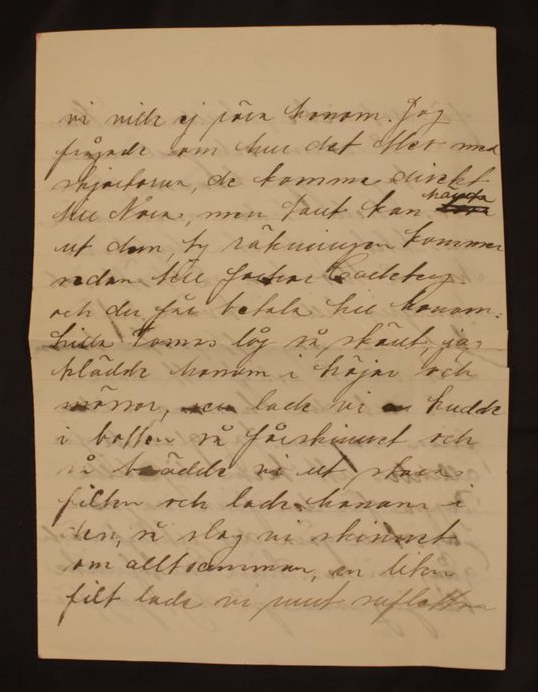 vi ville ej söva honom. Jag
frågade om hur det blev med
skjortorna, de komma direkt
till Nora, men Tant kan handa
ut dem, ty räkningen kommer
sedan till
och du får betala till honom.
Lilla Tomas låg så skönt, jag
klädde honom i tröjor och
mössor, lade vi en kudde
i botten så fårskinnet och
så bredde vi ut stora
filten och lade honom i
den, så slog vi skinnet
om alltsamman, en liten
filt lade vi runt